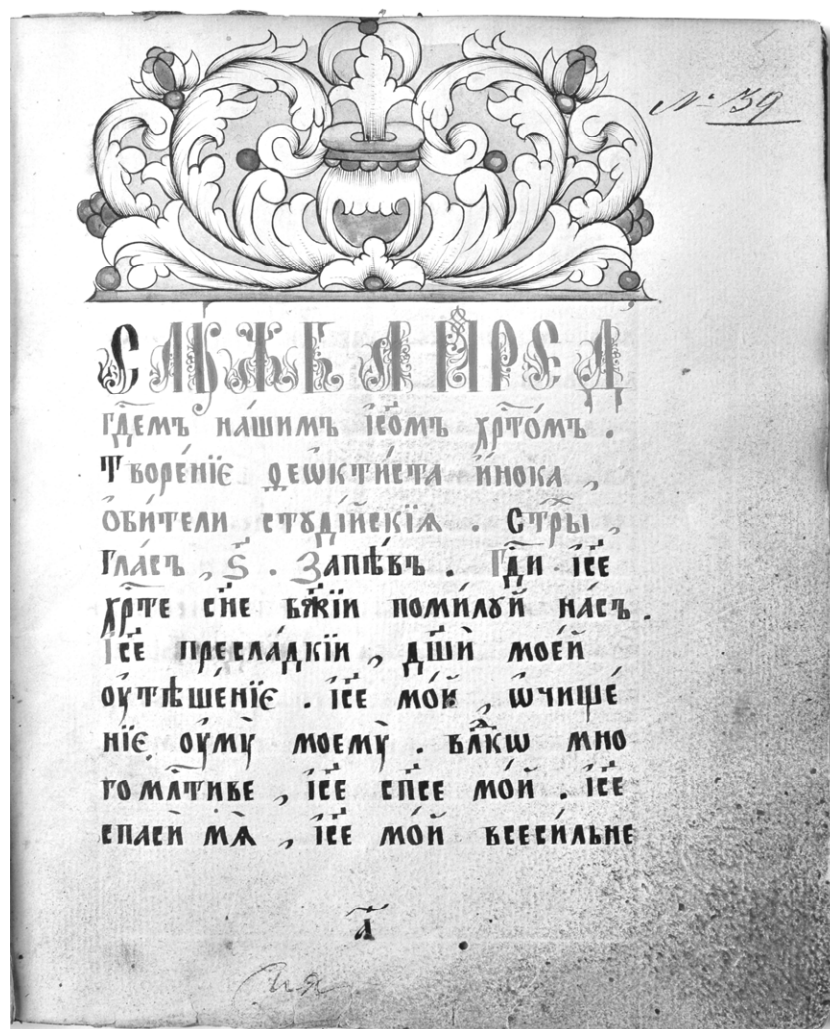 № 139
СЛꙊЖБА ПРЕД
гдⷭ҇емъ на́шимъ і҆сⷭ҇о́мъ хрⷭ҇то́мъ .
Творе́нїе ѳеѡкти́ста и҆́нока ,
ѻ҆би́тели стꙋді́йскїѧ . Стⷯры ,
Гла́съ , ѕ҃ . Запѣ́въ . Гдⷭ҇и і҆сⷭ҇е
хрⷭ҇те сн҃е бж҃їи поми́лꙋй на́съ .
І҆сⷭ҇е пресла́дкїи , дш҃и̂ мое́й
ᲂу҆тѣше́нїе . і҆сⷭ҇е мо́й , ѡ҆чище́
нїе ᲂу҆мꙋ̀ моемꙋ̀ . влⷣко мно
гомлⷭ҇тиве , і҆сⷭ҇е сп҃се мо́й . і҆сⷭ҇е
спасѝ мѧ̀ , і҆сⷭ҇е мо́й всеси́льне
а҃